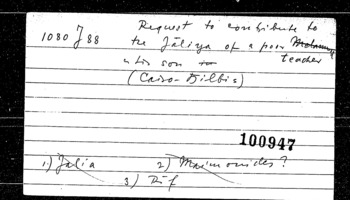 1080 J 88 Request to contribute to
the Jāliya of a poor
teacher
his son
(Cairo-Bilbis)
100947
1) Jalia 2) Maimonides?
3) Rif